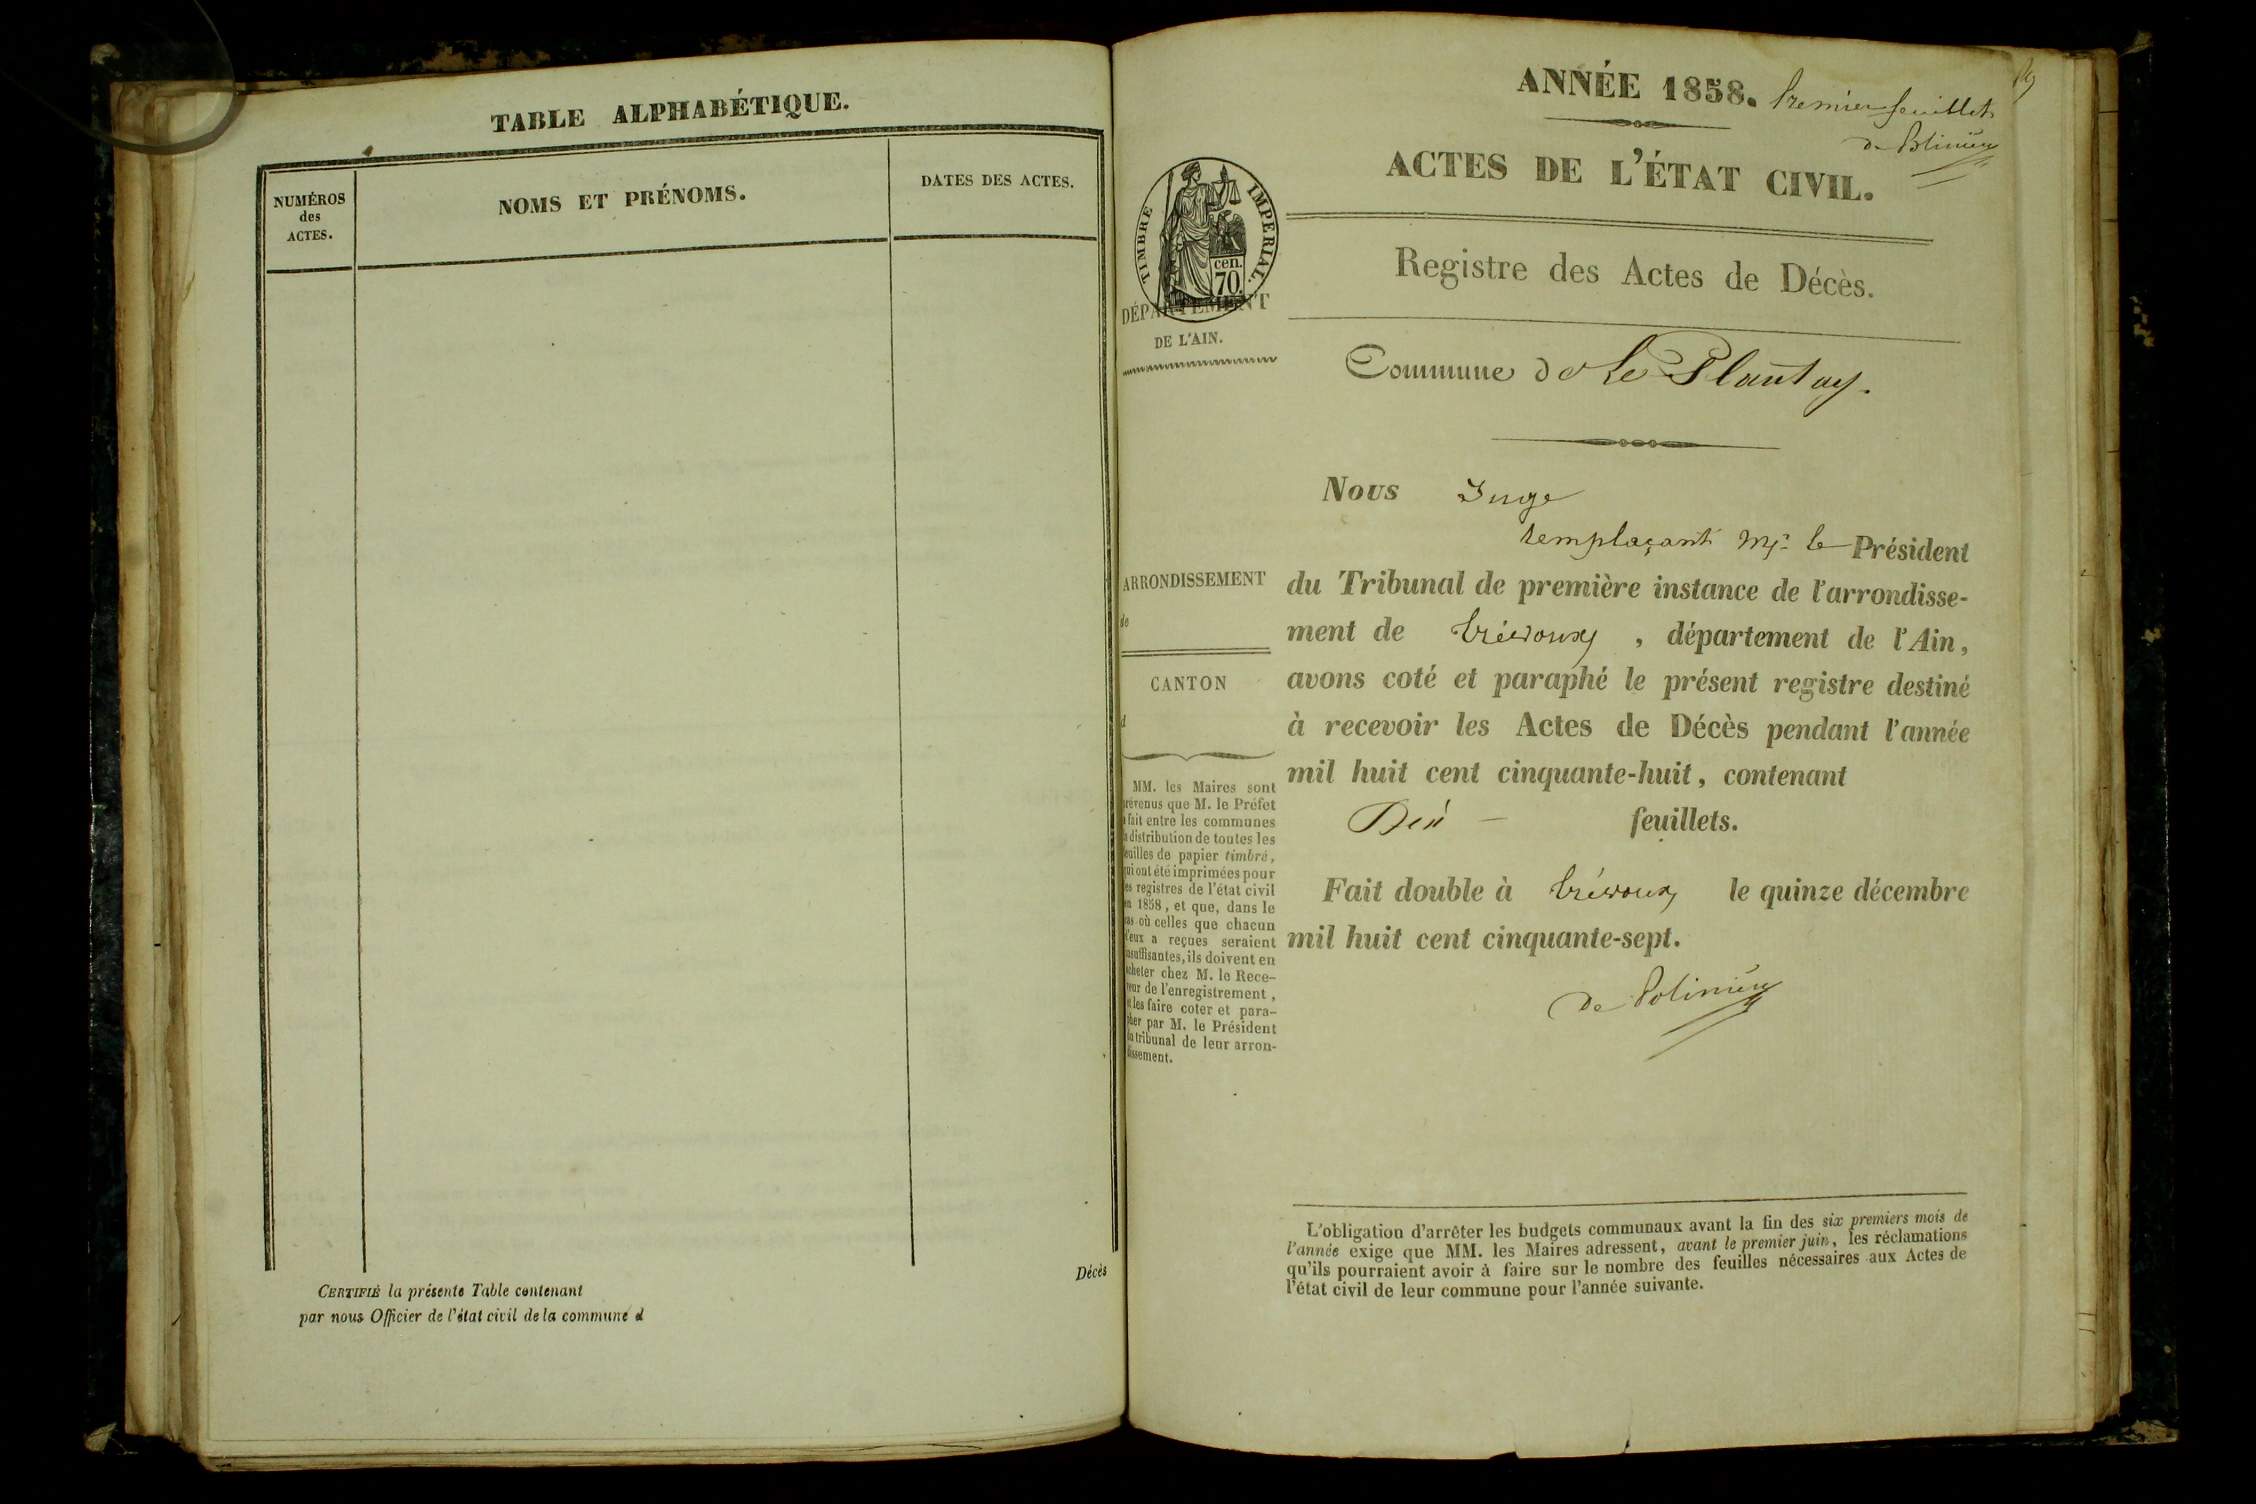 TABLE ALPHABÉTIQUE.
NUMÉROS
des
ACTES.
NOMS ET PRÉNOMS.
DATES DES ACTES.
CERTIFIÉ la présente Table contenant
Décès
par nous Officier de l'état civil de la commune d
ANNÉE 1858. Premier feuillet
de Polinière
ACTES DE L'ÉTAT CIVIL.
TIMBRE IMPERIAL.
cen.
70.
Registre des Actes de Décès.
DÉPARTEMENT
DE L'AIN.
Commune de Le Plantay.
Nous Juge
remplaçant Mr le Président
du Tribunal de première instance de l'arrondisse-
ment de Trévoux, département de l'Ain,
avons coté et paraphé le présent registre destiné
à recevoir les Actes de Décès pendant l'année
mil huit cent cinquante-huit, contenant
feuillets.
Fait double à Trévoux le quinze décembre
mil huit cent cinquante-sept.
de Polinière
ARRONDISSEMENT
de
CANTON
d
MM. les Maires sont
prévenus que M. le Préfet
a fait entre les communes
la distribution de toutes les
feuilles de papier timbré,
qui ont été imprimées pour
les registres de l'état civil
en 1858, et que, dans le
cas où celles que chacun
d'eux a reçues seraient
insuffisantes, ils doivent en
acheter chez M. le Rece-
veur de l'enregistrement,
et les faire coter et para-
pher par M. le Président
du tribunal de leur arron-
dissement.
L'obligation d'arrêter les budgets communaux avant la fin des six premiers mois de
l'année exige que MM. les Maires adressent, avant le premier juin, les réclamations
qu'ils pourraient avoir à faire sur le nombre des feuilles nécessaires aux Actes de
l'état civil de leur commune pour l'année suivante.